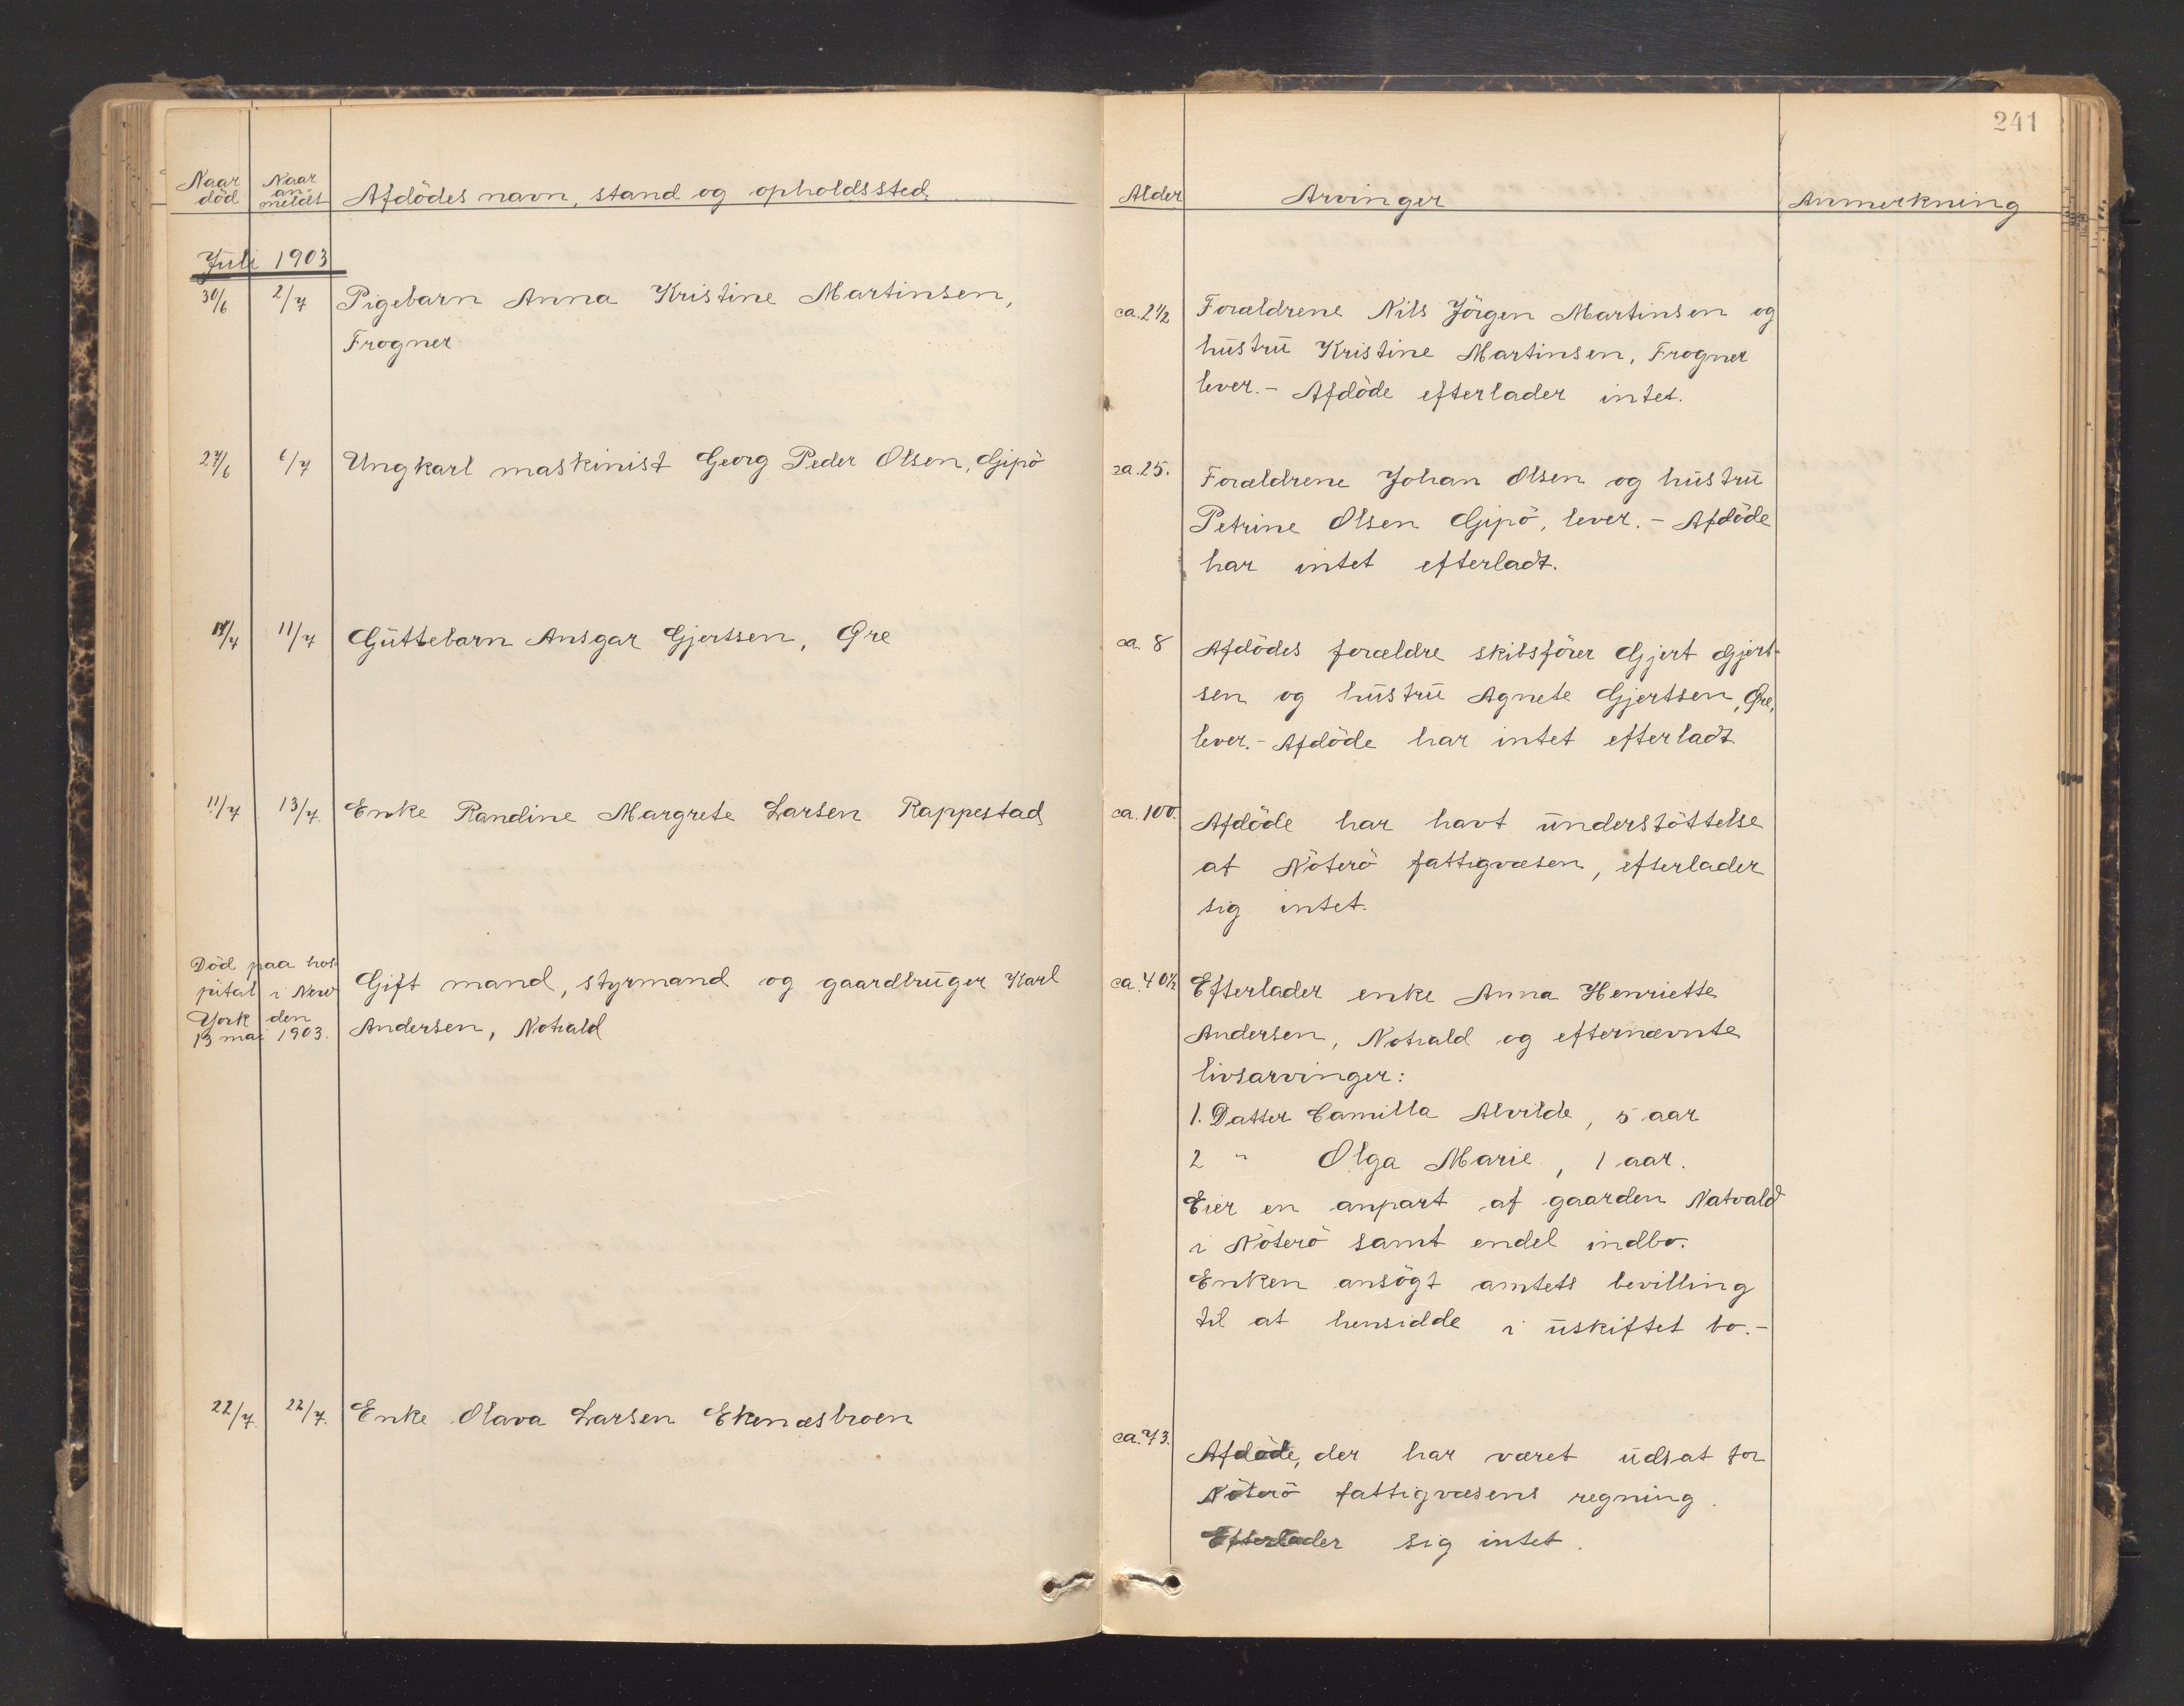 241
Naar död
Naar an- meldt
Afdödes navn, stand og opholdssted
Alder
Arvinger
Anmerkning
Juli 1903
30/6 2/7 Pigebarn Anna Kristine Martinsen,
Frogner
ca. 2 1/2 Forældrene Nils Jörgen Martinsen og
hustru Kristine Martinsen, Frogner
lever. - Afdöde efterlader intet.
27/6 6/7 Ungkarl maskinist Georg Peder Olsen, Gipö
ca. 25. Forældrene Johan Olsen og hustru
Petrine Olsen Gipö, lever. - Afdöde
har intet efterladt.
11/7 Guttebarn Ansgar Gjertsen, Öre
ca. 8 Afdödes forældre skibsförer Gjert Gjert-
sen og hustru Agnete Gjertsen, Öre,
lever. - Afdöde har intet efterladt
11/7 13/7. Enke Randine Margrete Larsen Rappestad
ca. 100. Afdöde har havt understöttelse
af Nöterö fattigvæsen, efterlader
sig intet.
Död paa hos-
pital i New
York den
13 mai 1903.
Gift mand, styrmand og gaardbruger Karl
Andersen, Notvald
ca. 40 1/2 Efterlader enke Anna Henriette
Andersen, Notvald og efternævnte
livsarvinger:
1. Datter Camilla Alvilde, 5 aar
2 " Olga Marie, 1 aar.
Eier en anpart af gaarden Natvald
i Nöterö samt endel indbo.
Enken ansögt amtets bevilling
til at hensidde i uskiftet bo. -
22/7. 22/7. Enke Olava Larsen Ekenæsbroen
ca. 73. Afdöde, der har været udsat for
Nöterö fattigvæsens regning.
Efterlader sig intet.